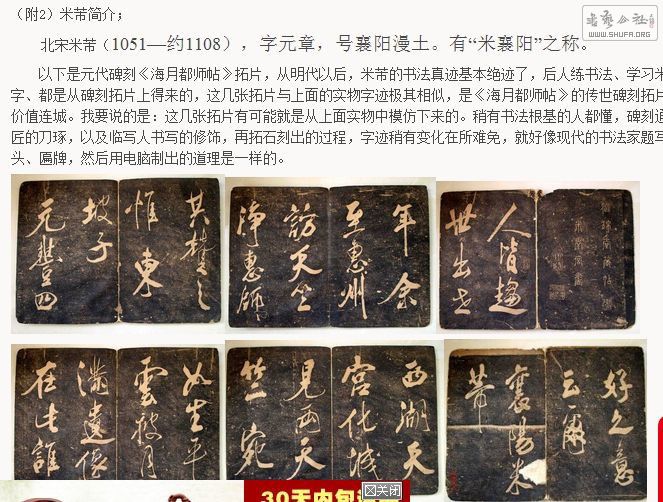 (附2)米芾简介；
北宋米芾（1051—约1108），字元章，号襄阳漫士。有“米襄阳”之称。
以下是元代碑刻《海月都师帖》拓片，从明代以后，米芾的书法真迹基本绝迹了，后人练书法、学习米
字、都是从碑刻拓片上得来的，这几张拓片与上面的实物字迹极其相似，是《海月都师帖》的传世碑刻拓片
价值连城。我要说的是：这几张拓片有可能就是从上面实物中模仿下来的。稍有书法根基的人都懂，碑刻通
匠的刀琢，以及临写人书写的修饰，再拓石刻出的过程，字迹稍有变化在所难免，就好像现代的书法家题写
头、匾牌，然后用电脑制出的道理是一样的。
书艺公社
WWW.SHUFA.ORG
其贊之
惟東
坡子
元豐四
年余
至惠州
訪天竺
淨惠師
人情趨
世出世
如生平
雲披月
滿遺像
在此誰
西湖天
宮化減
見兩天
竺宛
云爾
襄陽米
芾
30天内包
关闭